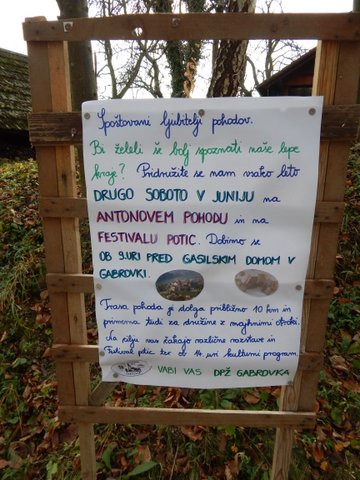 Spoštovani ljubitelji pohodov.
Bi želeli še bolj spoznati naše lepe
kraje? Pridružite se nam vsako leto
DRUGO SOBOTO V JUNIJU na
ANTONOVEM POHODU in na
FESTIVALU POTIC. Dobimo se
OB 9.URI PRED GASILSKIM DOMOM V
GABROVKI.
Trasa pohoda je dolga približno 10 km in
primerna tudi za družine z majhnimi otroki.
Na cilju vas čakajo različne razstave in
Festival potic ter ob 14. uri kulturni program.
VABI VAS DPŽ GABROVKA